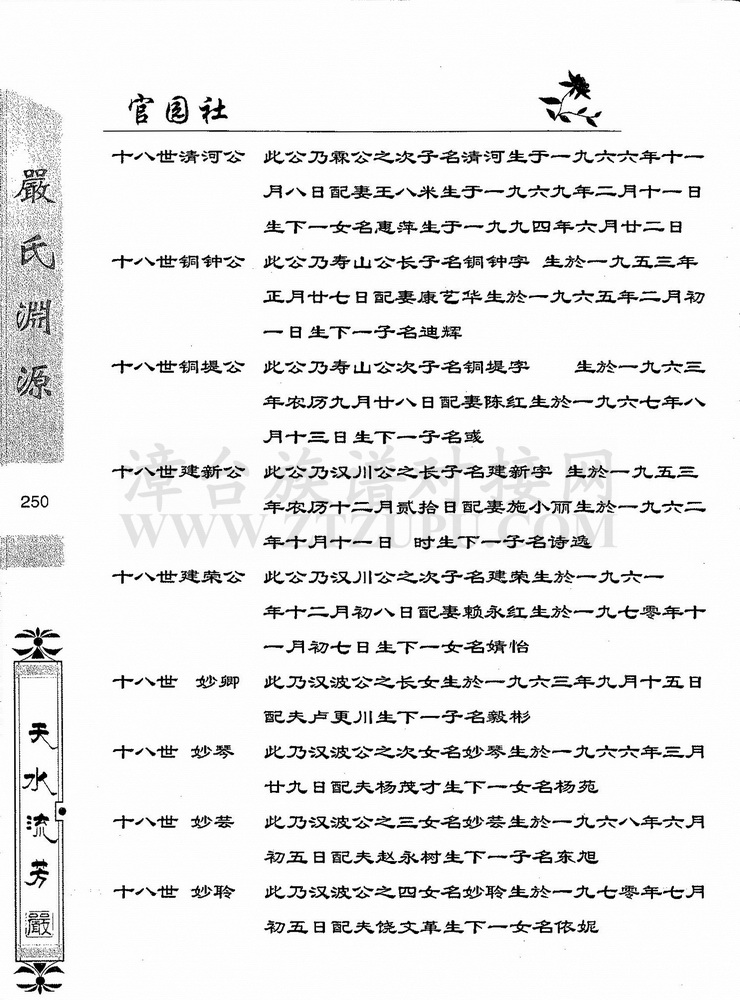 官园社
十八世清河公 此公乃霖公之次子名清河生于一九六六年十一
月八日配妻王八米生于一九六九年二月十一日
生下一女名惠萍生于一九九四年六月廿二日
十八世铜钟公 此公乃寿山公长子名铜钟字 生於一九五三年
正月廿七日配妻康艺华生於一九六五年二月初
一日生下一子名迪辉
十八世铜堤公 此公乃寿山公次子名铜堤字 生於一九六三
年农历九月廿八日配妻陈红生於一九六七年八
月十三日生下一子名彧
十八世建新公 此公乃汉川公之长子名建新字 生於一九五三
年农历十二月贰拾日配妻施小丽生於一九六二
年十月十一日 时生下一子名诗逸
十八世建荣公 此公乃汉川公之次子名建荣生於一九六一
年十二月初八日配妻赖永红生於一九七零年十
一月初七日生下一女名婧怡
十八世 妙卿 此乃汉波公之长女生於一九六三年九月十五日
配夫卢更川生下一子名毅彬
十八世 妙琴 此乃汉波公之次女名妙琴生於一九六六年三月
廿九日配夫杨茂才生下一女名杨苑
十八世 妙芸 此乃汉波公之三女名妙芸生於一九六八年六月
初五日配夫赵永树生下一子名东旭
十八世 妙聆 此乃汉波公之四女名妙聆生於一九七零年七月
初五日配夫饶文革生下一女名依妮
嚴氏淵源
250
天水流芳
嚴
漳台族谱对接网
WWW.ZTZUPU.COM